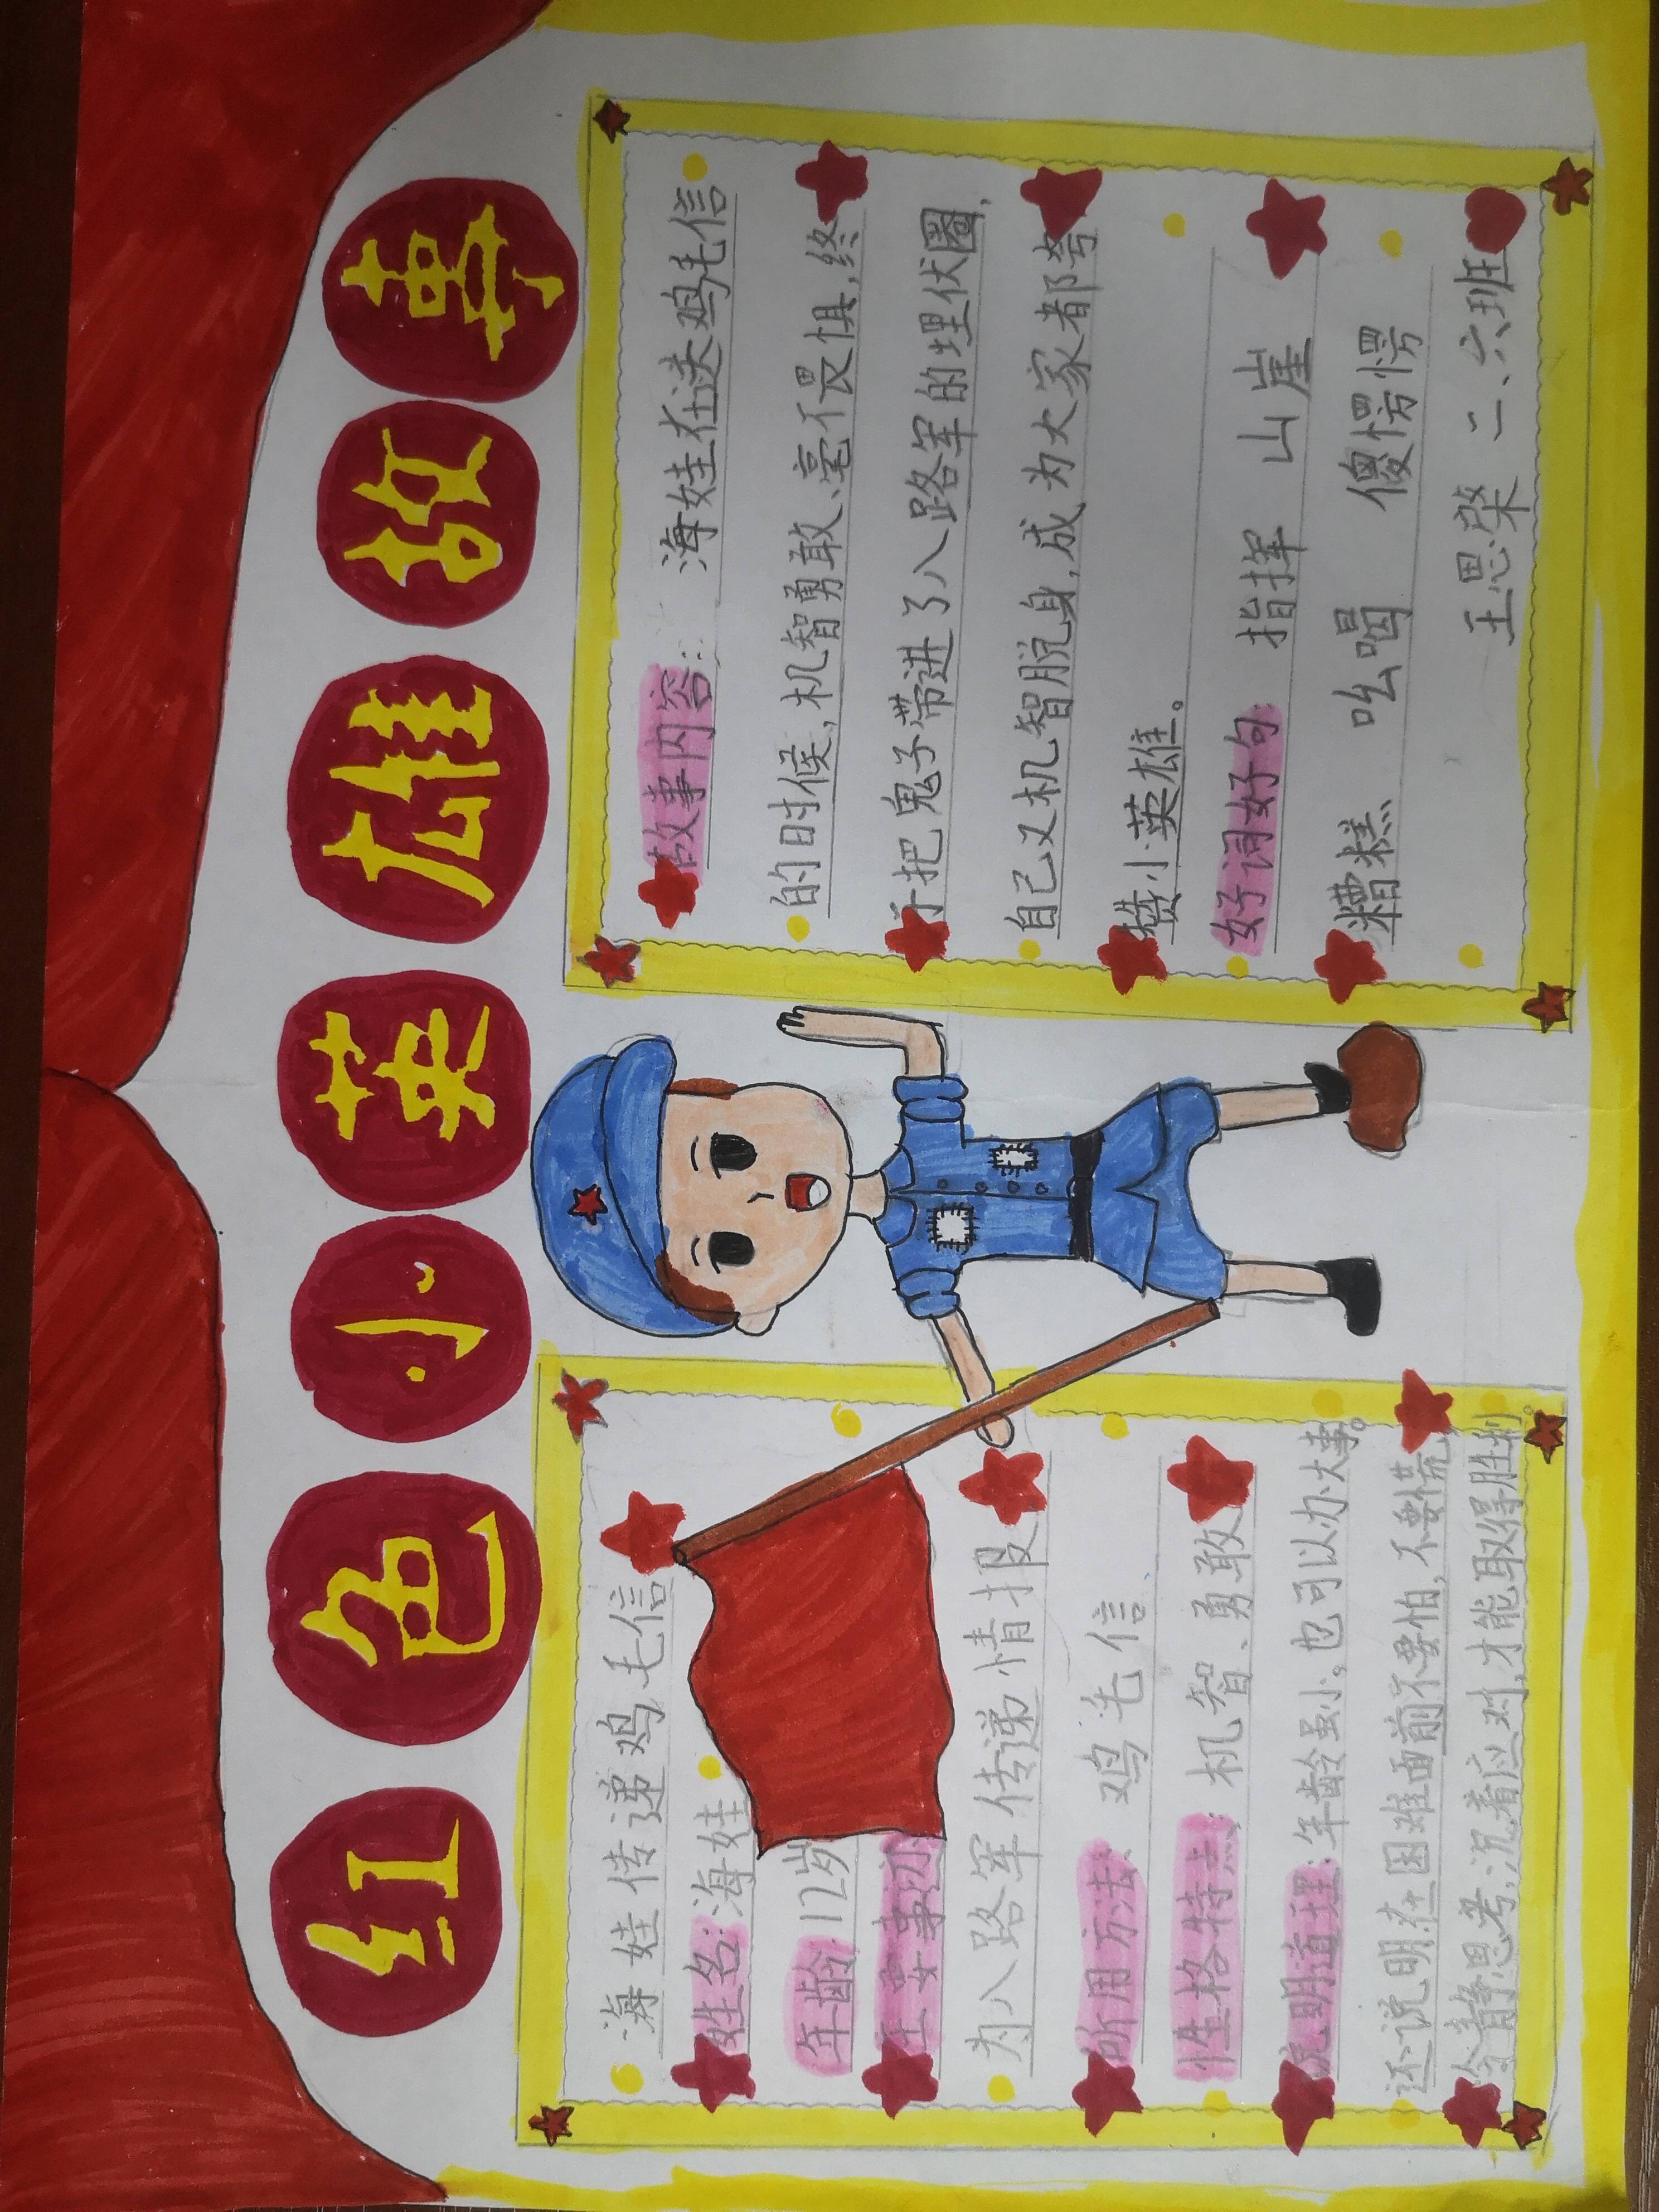 红色小英雄故事
海娃传递鸡毛信
姓名:海娃
年龄:12岁
主要事迹
为八路军传递情报
所用方法: 鸡毛信
性格特点: 机智、勇敢
说明道理:年龄虽小,也可以办大事。
还说明在困难面前不要怕,不要慌,
冷静思考,沉着应对,才能取得胜利。
故事内容: 海娃在送鸡毛信
的时候,机智勇敢、毫不畏惧,终
于把鬼子带进了八路军的埋伏圈,
自己又机智脱身,成为大家都夸
赞小英雄。
好词好句: 指挥 山崖
糟糕 吆喝 傻愣愣
王思棨 二、六班